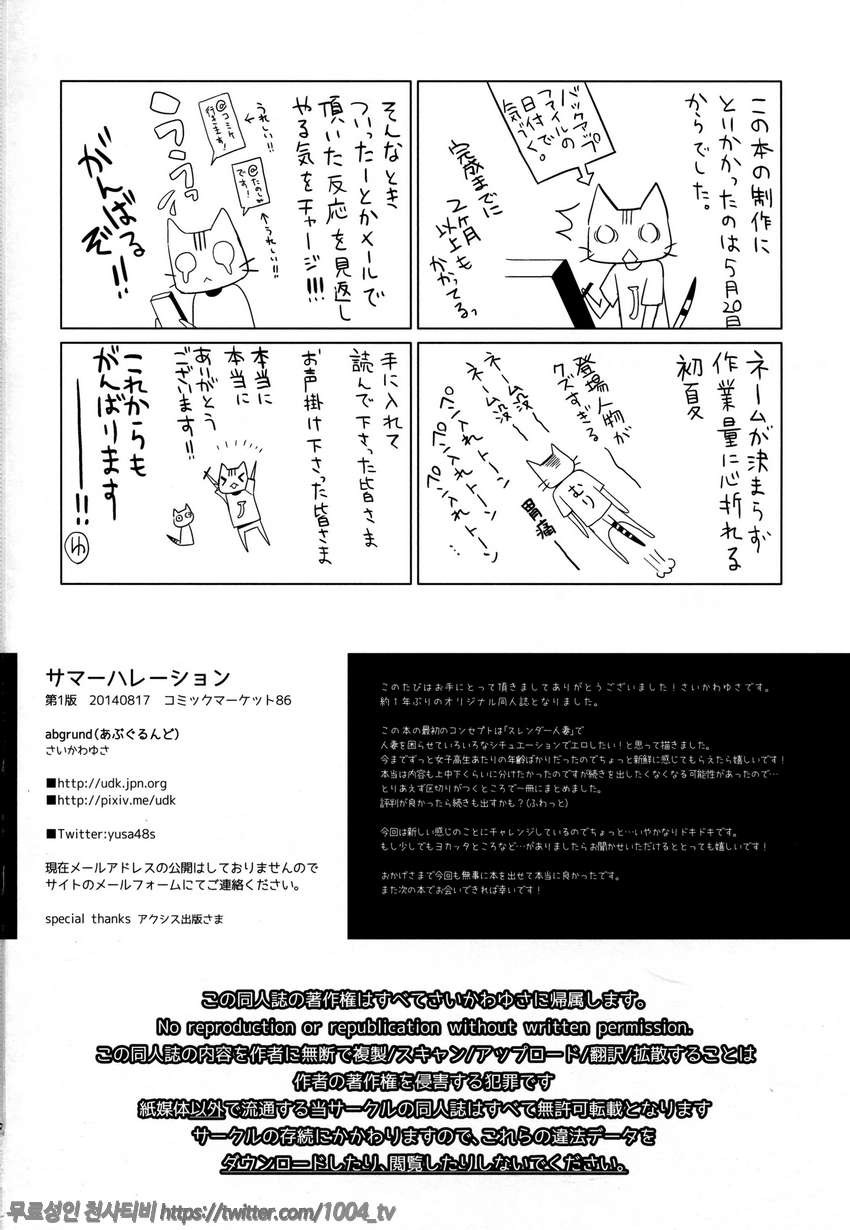 この本の制作に
とりかかったのは5月20日
からでした。
バックアップ
ファイルの
日付で
気づく。
完成までに
2ヶ月
以上も
かかってるっ
J
そんなとき
ついったーとかメールで
頂いた反応を見返し
やる気をチャージ!!!
うれしい!!
@コミケ
行きます!
@たのしみ
です!
うれしい!!
うっうっ
がんばる
ぞ!!
ネームが決まらず
作業量に心折れる
初夏
登場人物が
クズすぎる
ネーム没ー
ネーム没ー
ペン入れトーン
ペン入れトーン
ペン入れトーン…
むり
胃痛ー
手に入れて
読んで下さった皆さま
お声掛け下さった皆さま
本当に
本当に
ありがとう
ございます!!
J
これからも
がんばります
――!!
ゆ
サマーハレーション
第1版 20140817 コミックマーケット86
abgrund(あぶぐるんど)
さいかわゆさ
■http://udk.jpn.org
■http://pixiv.me/udk
■Twitter:yusa48s
現在メールアドレスの公開はしておりませんので
サイトのメールフォームにてご連絡ください。
special thanks アクシス出版さま
このたびはお手にとって頂きましてありがとうございました!さいかわゆさです。
約1年ぶりのオリジナル同人誌となりました。
この本の最初のコンセプトは「スレンダー人妻」で
人妻を困らせていろいろなシチュエーションでエロしたい!と思って描きました。
今までずっと女子高生あたりの年齢ばかりだったのでちょっと新鮮に感じてもらえたら嬉しいです!
本当は内容も上中下くらいに分けたかったのですが続きを出したくなくなる可能性があったので…
とりあえず区切りがつくところで一冊にまとめました。
評判が良かったら続きも出すかも?(ふわっと)
今回は新しい感じのことにチャレンジしているのでちょっと…いやかなりドキドキです。
もし少しでもヨカッタところなど…がありましたらお聞かせいただけるととっても嬉しいです!
おかげさまで今回も無事に本を出せて本当に良かったです。
また次の本でお会いできれば幸いです!
この同人誌の著作権はすべてさいかわゆさに帰属します。
No reproduction or republication without written permission.
この同人誌の内容を作者に無断で複製/スキャン/アップロード/翻訳/拡散することは
作者の著作権を侵害する犯罪です
紙媒体以外で流通する当サークルの同人誌はすべて無許可転載となります
サークルの存続にかかわりますので、これらの違法データを
ダウンロードしたり、閲覧したりしないでください。
무료성인 천사티비 https://twitter.com/1004_tv